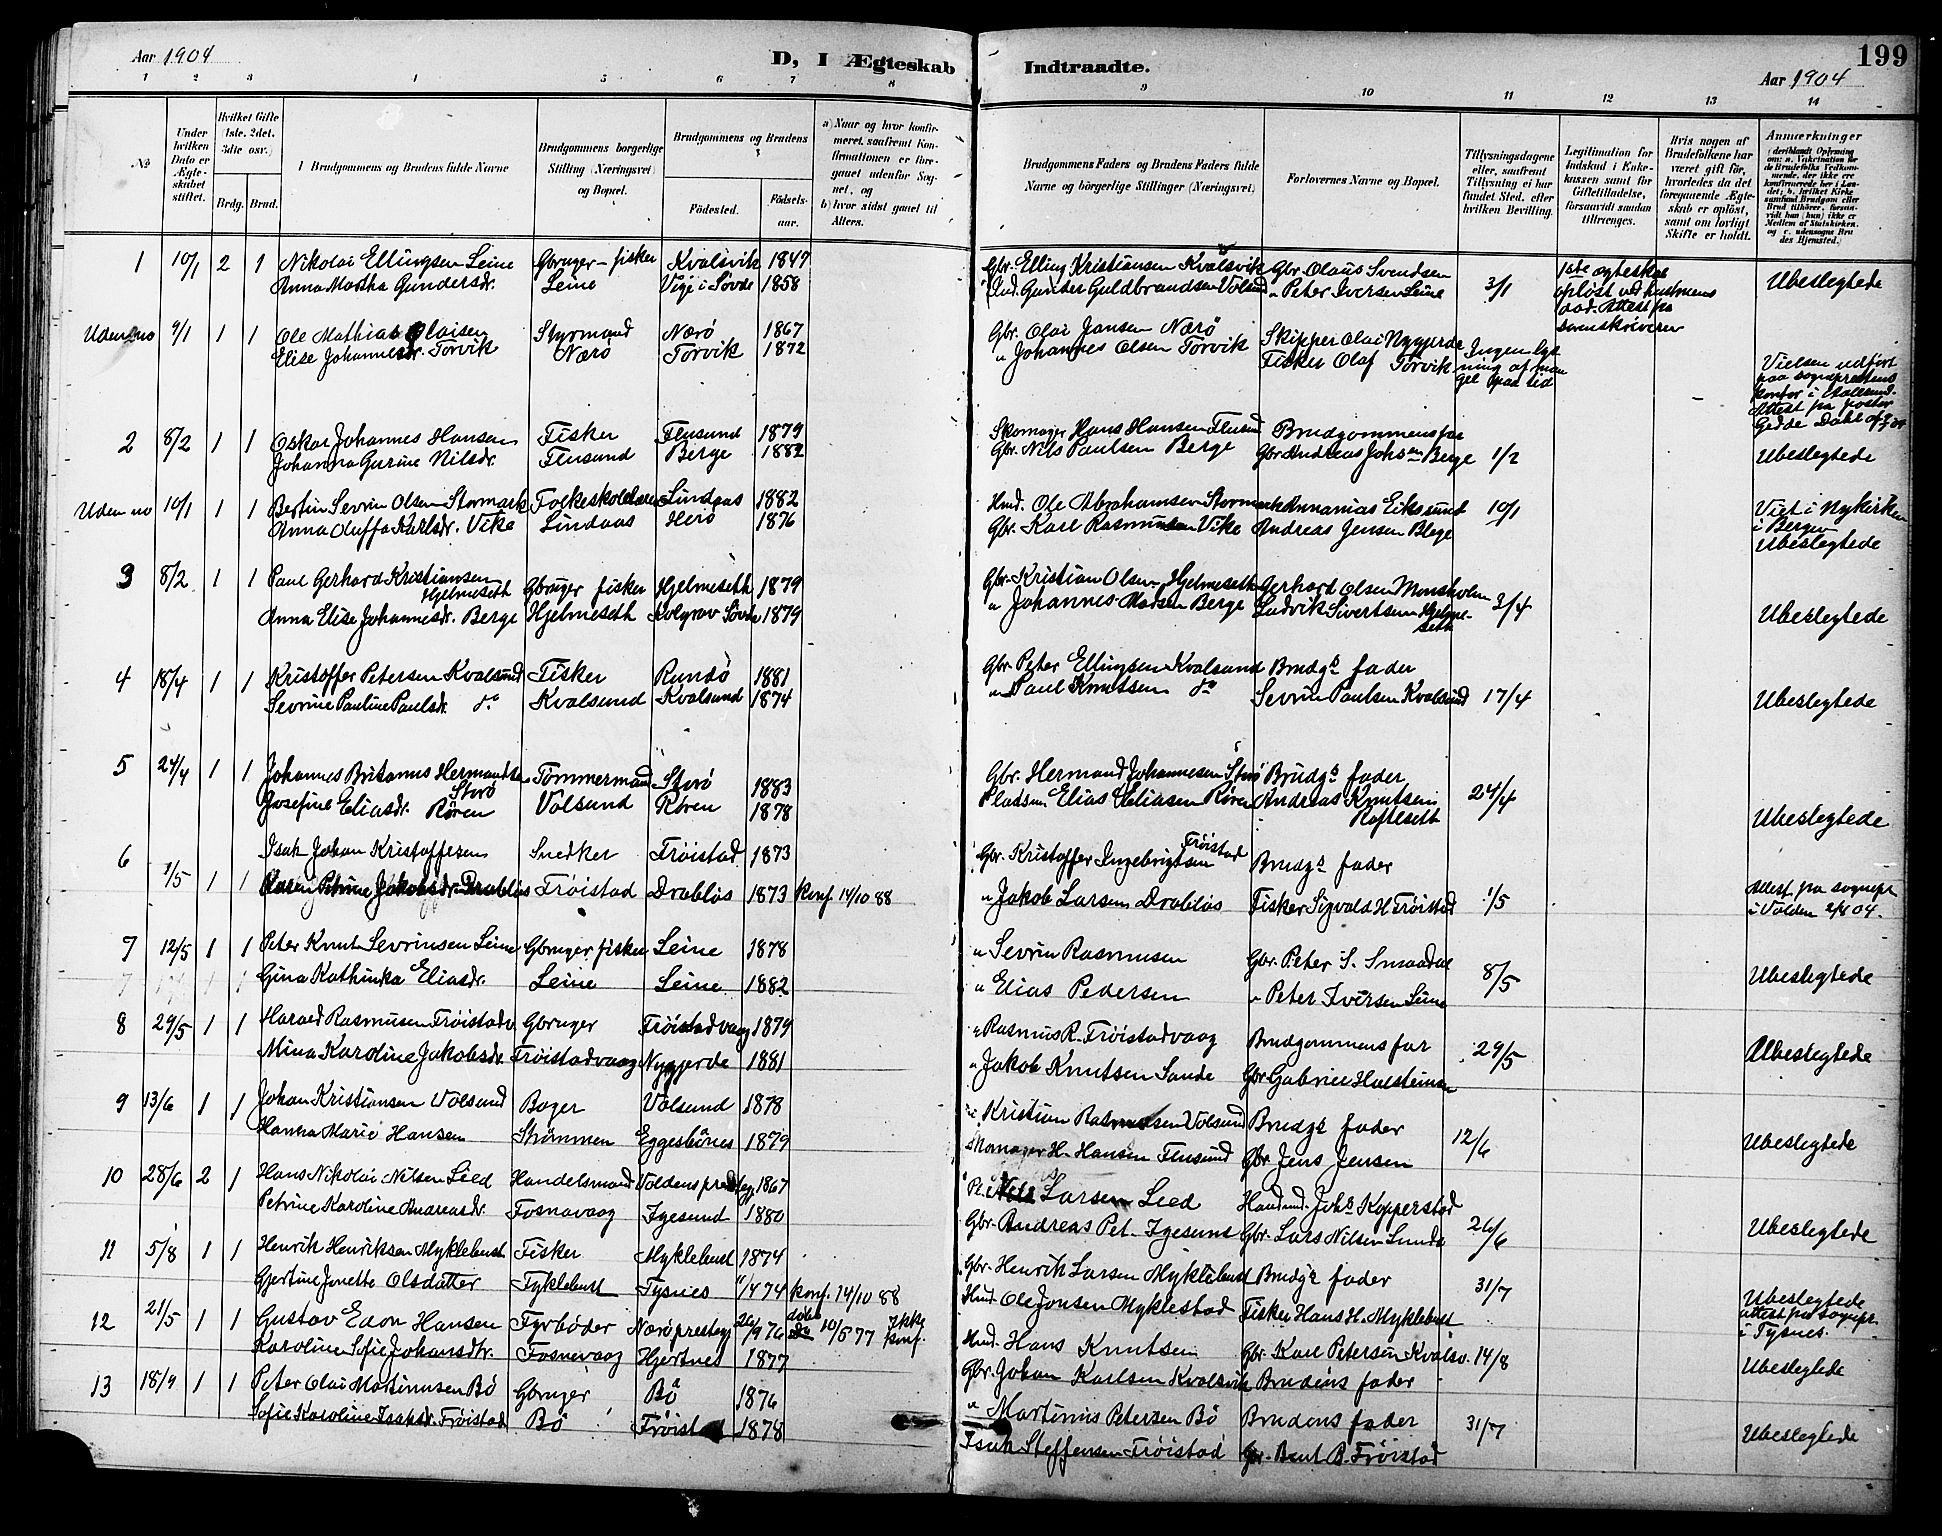 Aar 1904
D, I Ægteskab Indtraadte.
199
Aar 1904
1 2 3 4 5 6 7 8 9 10 11 12 13 14
No
Under hvilken Dato er Ægteskabet stiftet.
Hvilket Gifte (1ste. 2det. 3die osv.)
Brdg. Brud.
Brudgommens og Brudens fulde Navne
Brudgommens borgerlige Stilling (Næringsvei) og Bopæl.
Brudgommens og Brudens
Fødested. Fødselsaar.
a) Naar og hvor konfirmeret, saafremt Konfirmationen er foregaaet udenfor Sognet, og
b) hvor sidst gaaet til Alters.
Brudgommens Faders og Brudens Faders fulde Navne og borgerlige Stillinger (Næringsvei)
Forlovernes Navne og Bopæl.
Tillysningsdagene eller, saafremt Tillysning ei har fundet Sted, efter hvilken Bevilling.
Legitimation for Indskud i Enkekassen samt for Giftetilladelse, forsaavidt saadan tiltrænges.
Hvis nogen af Brudefolkene har været gift før, hvorledes da det foregaaende Ægteskab er opløst, samt om lovligt Skifte er holdt.
Anmærkninger
1 10/1 2 1 Nikolai Ellingsen Leine Gbruger - fisker Kvalsvik 1847 Gbr. Elling Kristiansen Kvalsvik Gbr Olaus Svendsen 3/1 1ste ægteskab Ubeslegtede
Anna Martha Gundersdr. Leine Vige i Søvde 1858 Ind. Gunder Guldbrandsen Volsund " Peter Iversen Leine opløst ved hustruens død. Attest fra sorenskriveren
Uden no 9/1 1 1 Ole Mathias Olaisen Styrmand Nærø 1867 Gbr. Olai Jansen Nærø Skipper Olai Nygjerde
Elise Johannesdr. Torvik Nærø Torvik 1872 " Johannes Olsen Torvik Fisker Olaf Torvik Ingen lysning af mangel paa tid Vielsen udført paa sogneprestens kontor i Aalesund.
2 8/2 1 1 Oskar Johannes Hansen Fisker Flusund 1879 Skomager Hans Hansen Flusund Brudgommens far
Johanna Gurine Nilsdr. Flusund Berge 1882 Gbr. Nils Paulsen Berge Gbr Andreas Johsen Berge 1/2 Ubeslegtede
Uden no 10/1 1 1 Bertin Sevrin Olsen Stormark Folkeskolelærer Lindaas 1882 Hmd. Ole Abrahamsen Stormark Annanias Eiksund 10/1 Viet i Nykirken
Anna Oluffa Karlsdr. Vike Lindaas Herø 1876 Gbr. Karl Rasmusen Vike Andreas Jensen Blege i Bergen Ubeslegtede
3 8/2 1 1 Paul Gerhard Kristiansen Hjelmeseth Gbruger fisker Hjelmeseth 1879 Gbr. Kristian Olsen Hjelmeseth Gerhard Olsen Monsholm
Anna Elise Johannesdr. Berge Hjelmeseth Kolgrov Søvde 1879 " Johannes Madsen Berge Ludvik Sivertsen Hjelmeseth 3/4 Ubeslegtede
4 18/4 1 1 Kristoffer Petersen Kvalsund Fisker Rundö 1881 Gbr Peter Ellingsen Kvalsund Brudgs fader
Sevrine Pauline Paulsdr. do Kvalsund Kvalsund 1874 " Paul Knutsen do Sevrin Paulsen Kvalsund 17/4 Ubeslegtede
5 24/4 1 1 Johannes Britanus Hermandsen Storö Tømmermand Storö 1883 Gbr. Hermand Johannesen Storö Brudgs fader
Josefine Eliasdr. Røren Volsund Røren 1878 Pladsm Elias Eliasen Røren Andreas Knutsen Rafteseth 24/4 Ubeslegtede
6 1/5 1 1 Isak Johan Kristoffersen Snedker Frøistad 1873 Gbr. Kristoffer Ingebrigtsen Frøistad Brudgs fader
Karen Petrine Jakobsdr. Drabløs Frøistad Drabløs 1873 Konf. 14/10 88 " Jakob Larsen Drabløs Fisker Sigvald H Frøistad 1/5 Attest fra sognepr i Volden
7 12/5 1 1 Peter Knut Sevrinsen Leine Gbruger fisker Leine 1878 " Sevrin Rasmusen Gbr. Peter S. Smaadal
Gina Kathinka Eliasdr. Leine Leine 1882 " Elias Pedersen " Peter Iversen Leine 8/5 Ubeslegtede
8 29/5 1 1 Harald Rasmusen Frøistadv. Gbruger Frøistadvaag 1879 " Rasmus R. Frøistadvaag Brudgommens far
Mina Karoline Jakobsdr. Frøistadvaag Nygjerde 1881 " Jakob Knutsen Sande Gbr Gabriel Halsteinsen 29/5 Ubeslegtede
9 13/6 1 1 Johan Kristiansen Volsund Bager Volsund 1878 Kristian Rasmusen Volsund Brudgs fader
Hanna Marie Hansen Strømmen Eggesbönes 1879 Skomager H. Hansen Flusund Gbr Jens Jensen 12/6 Ubeslegtede
10 28/6 2 1 Hans Nikolai Nilsen Lied Handelsmand Voldens prestegj 1867 Nils Larsen Lied Handmd. Johs Kopperstad
Petrine Karoline Andreasdr. Fosnavaag Igesund 1880 Gbr. Andreas Pet. Igesund Gbr. Lars Nilsen Sunde 26/6 Ubeslegtede
11 5/8 1 1 Henrik Henriksen Myklebust Fisker Myklebust 1874 Gbr. Henrik Larsen Myklebust Brudgs fader
Gjertine Jonette Olsdatter Myklebust Tysnes 11/4 74 Konf. 14/10 88 Hmd. Ole Jonsen Myklestad Fisker Hans H. Myklebust 31/7 Ubeslegtede attest fra sognepr i Tysnes.
12 21/5 1 1 Gustav Edon Hansen Fyrbøder Nærö prestegj 26/9 76 døbt 10/5 77 Ikke konf. Hmd. Hans Knutsen Gbr. Karl Petersen Kvalsv. 14/8
Karoline Sofie Johansdtr. Fosnavaag Hjertnes 1877 Gbr. Johan Karlsen Kvalsvik Brudens fader Ubeslegtede
13 18/9 1 1 Peter Olai Martinusen Bö Gbruger Bö 1876 " Martinus Petersen Bö Brudens fader
Sofie Karoline Isaksdr. Frøistad Bö Frøistad 1878 Isak Steffensen Frøistad Gbr. Bent B. Frøistad 31/7 Ubeslegtede